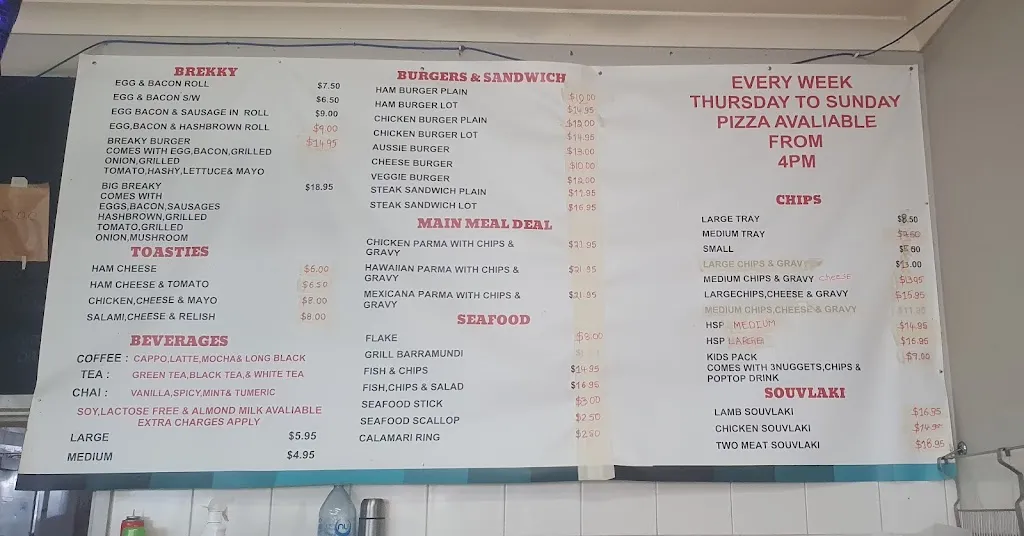 BREKKY
EGG & BACON ROLL $7.50
EGG & BACON S/W $6.50
EGG BACON & SAUSAGE IN ROLL $9.00
EGG,BACON & HASHBROWN ROLL $9.00
BREAKY BURGER $14.95
COMES WITH EGG,BACON,GRILLED
ONION,GRILLED
TOMATO,HASHY,LETTUCE& MAYO
BIG BREAKY $18.95
COMES WITH
EGGS,BACON,SAUSAGES
HASHBROWN,GRILLED
TOMATO,GRILLED
ONION,MUSHROOM
TOASTIES
HAM CHEESE $6.00
HAM CHEESE & TOMATO $6.50
CHICKEN,CHEESE & MAYO $8.00
SALAMI,CHEESE & RELISH $8.00
BEVERAGES
COFFEE : CAPPO,LATTE,MOCHA& LONG BLACK
TEA : GREEN TEA,BLACK TEA,& WHITE TEA
CHAI : VANILLA,SPICY,MINT& TUMERIC
SOY,LACTOSE FREE & ALMOND MILK AVALIABLE
EXTRA CHARGES APPLY
LARGE $5.95
MEDIUM $4.95
BURGERS & SANDWICH
HAM BURGER PLAIN $10.00
HAM BURGER LOT $14.95
CHICKEN BURGER PLAIN
CHICKEN BURGER LOT $14.95
AUSSIE BURGER $13.00
CHEESE BURGER $10.00
VEGGIE BURGER
STEAK SANDWICH PLAIN $11.95
STEAK SANDWICH LOT $16.95
MAIN MEAL DEAL
CHICKEN PARMA WITH CHIPS & $21.95
GRAVY
HAWAIIAN PARMA WITH CHIPS & $21.95
GRAVY
MEXICANA PARMA WITH CHIPS & $21.95
GRAVY
SEAFOOD
FLAKE
GRILL BARRAMUNDI
FISH & CHIPS $14.95
FISH,CHIPS & SALAD $16.95
SEAFOOD STICK $3.00
SEAFOOD SCALLOP $2.50
CALAMARI RING
EVERY WEEK
THURSDAY TO SUNDAY
PIZZA AVALIABLE
FROM
4PM
CHIPS
LARGE TRAY
MEDIUM TRAY
SMALL
LARGE CHIPS & GRAVY
MEDIUM CHIPS & GRAVY CHEESE $13.95
LARGECHIPS,CHEESE & GRAVY $15.95
MEDIUM CHIPS,CHEESE & GRAVY
HSP MEDIUM $14.95
HSP LARGE $16.95
KIDS PACK $9.00
COMES WITH 3NUGGETS,CHIPS &
POPTOP DRINK
SOUVLAKI
LAMB SOUVLAKI $16.95
CHICKEN SOUVLAKI
TWO MEAT SOUVLAKI $18.95